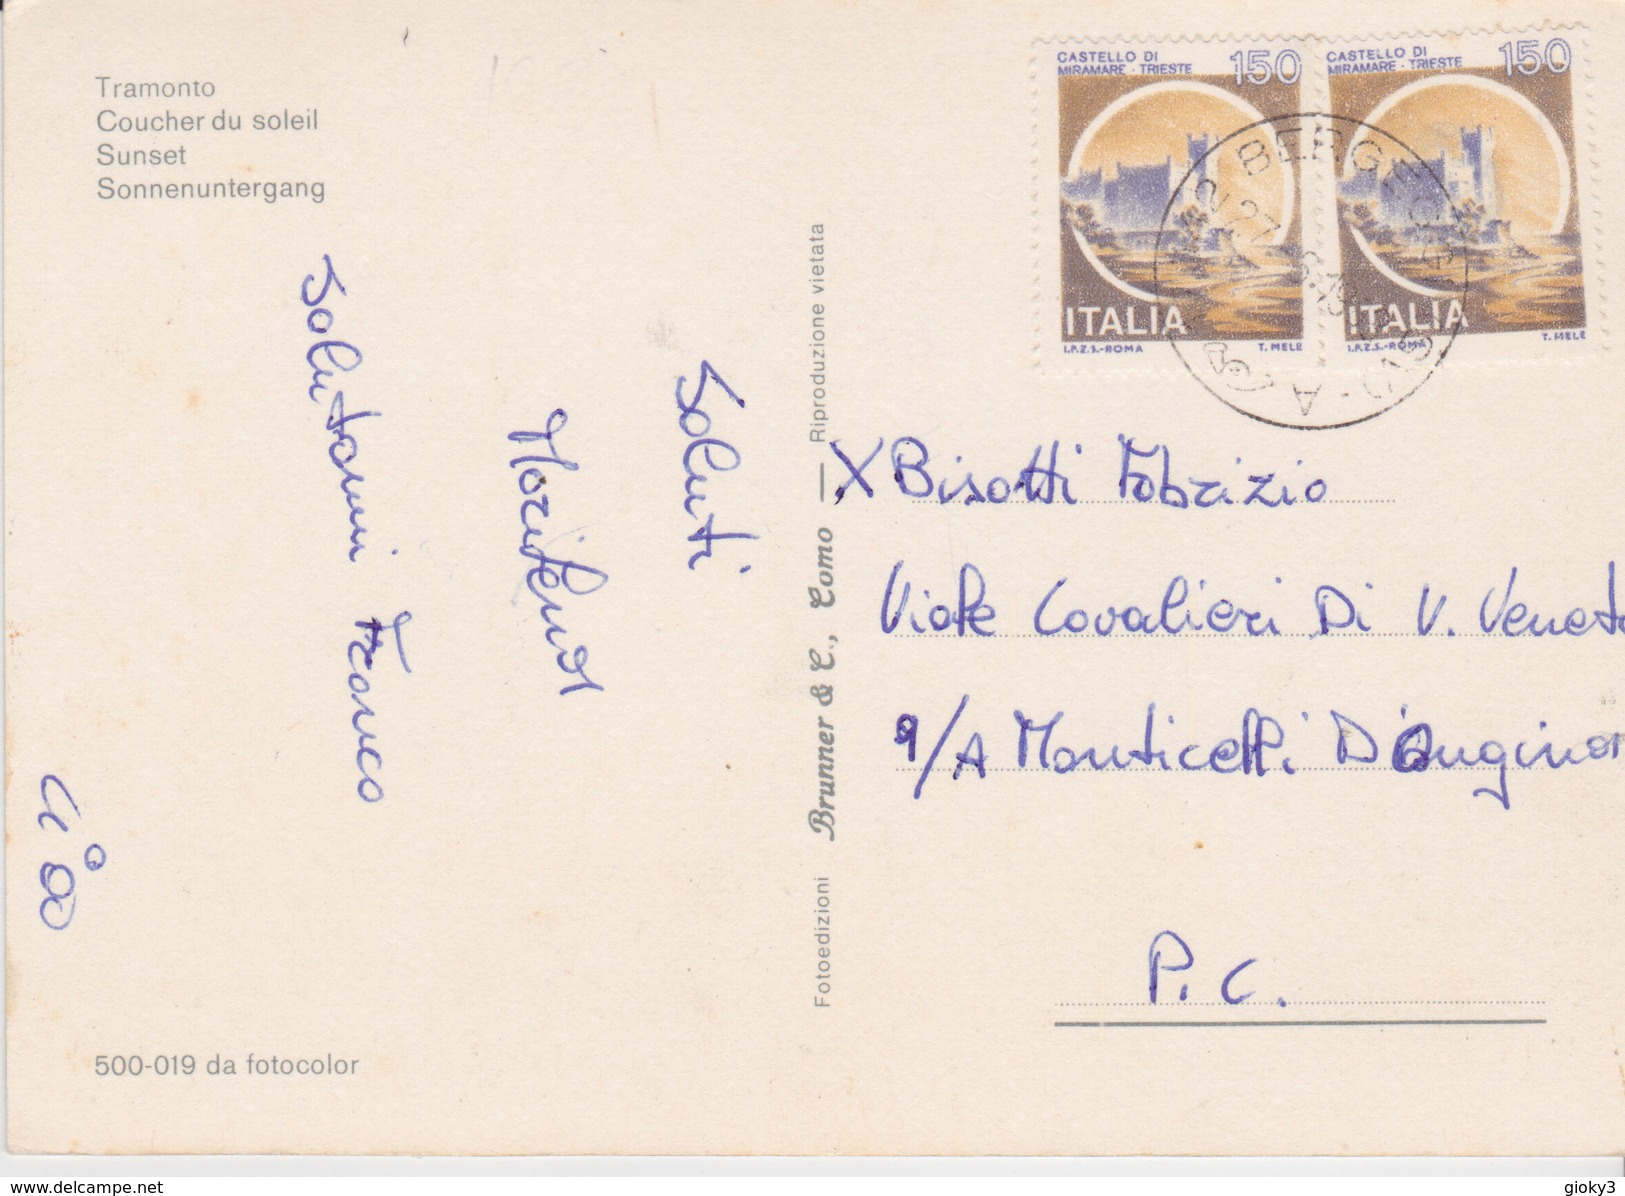 Tramonto
Coucher du soleil
Sunset
Sonnenuntergang
CASTELLO DI
MIRAMARE - TRIESTE
150
ITALIA
I.P.Z.S.-ROMA
T. MELE
CASTELLO DI
MIRAMARE - TRIESTE
150
ITALIA
I.P.Z.S.-ROMA
T. MELE
Saluti
Salutami Franco
Ciao
Fotoedizioni Brunner & C., Como — Riproduzione vietata
X Bisotti Fabrizio
Viale Cavalieri Di V. Veneto
9/A Monticelli D'ongina
P. C.
500-019 da fotocolor
delcampe.net
gioky3